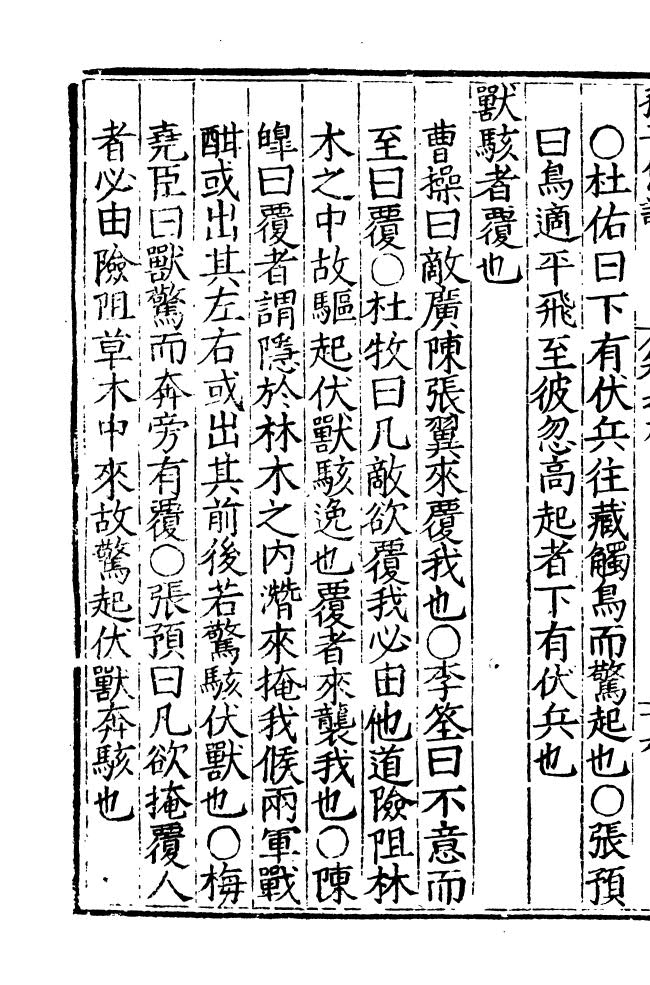 ○杜佑曰下有伏兵往藏觸鳥而驚起也○張預
曰鳥適平飛至彼忽高起者下有伏兵也
獸駭者覆也
曹操曰敵廣陳張翼來覆我也○李筌曰不意而
至曰覆○杜牧曰凡敵欲覆我必由他道險阻林
木之中故驅起伏獸駭逸也覆者來襲我也○陳
皥曰覆者謂隱於林木之內潛來掩我候兩軍戰
酣或出其左右或出其前後若驚駭伏獸也○梅
堯臣曰獸驚而奔旁有覆○張預曰凡欲掩覆人
者必由險阻草木中來故驚起伏獸奔駭也